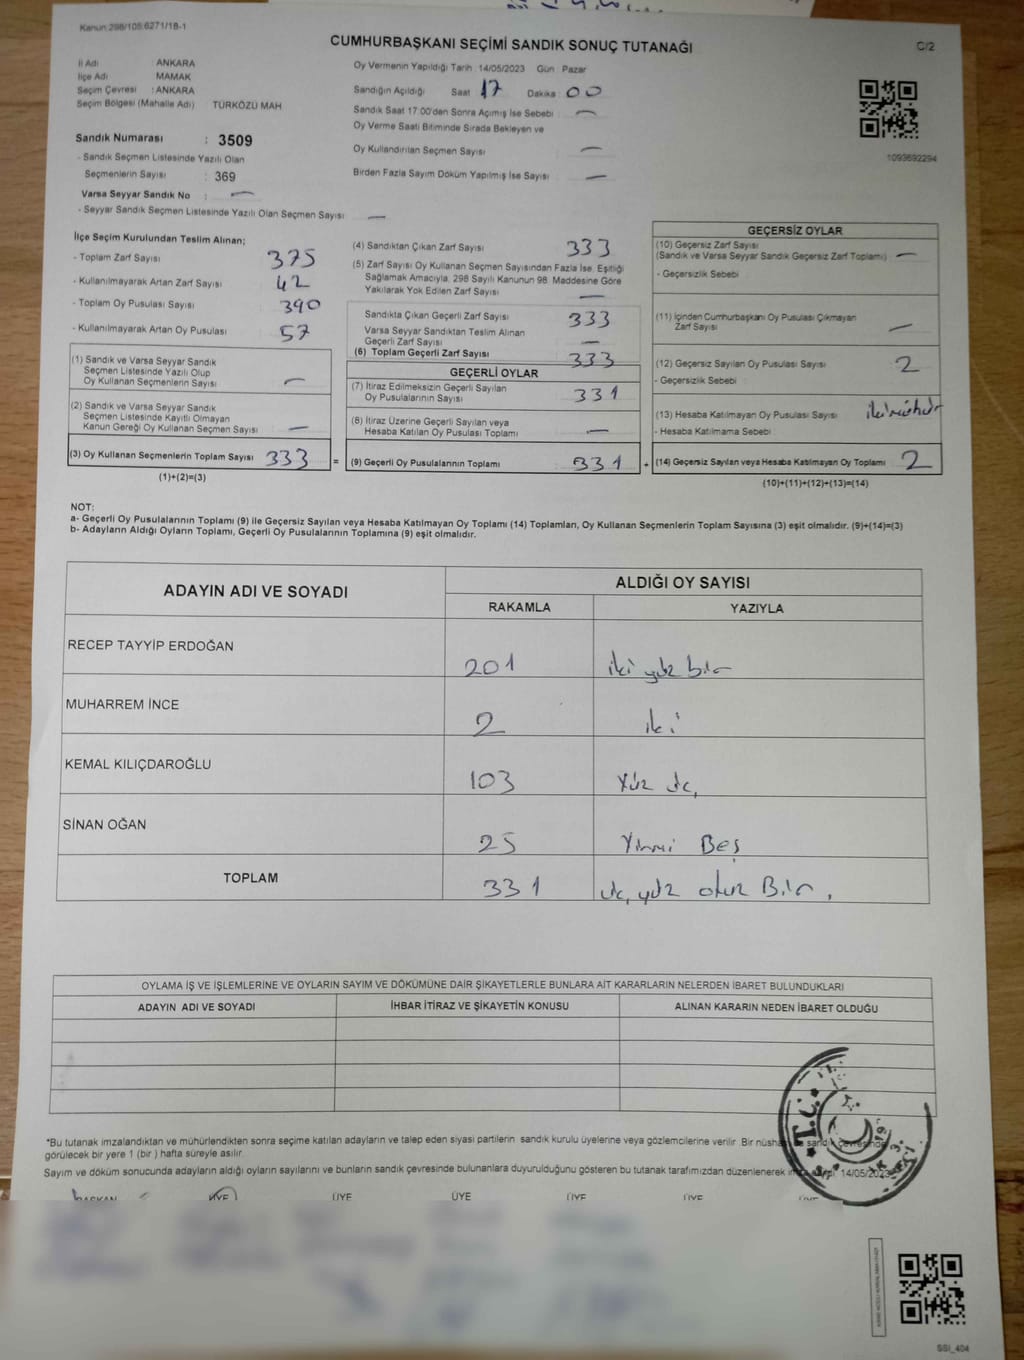 Kanun:298/105;6271/18-1
CUMHURBAŞKANI SEÇİMİ SANDIK SONUÇ TUTANAĞI
C/2
İl Adı ANKARA
İlçe Adı MAMAK
Seçim Çevresi : ANKARA
Seçim Bölgesi (Mahalle Adı) TÜRKÖZÜ MAH
Sandık Numarası : 3509
- Sandık Seçmen Listesinde Yazılı Olan
Seçmenlerin Sayısı : 369
Varsa Seyyar Sandık No : —
- Seyyar Sandık Seçmen Listesinde Yazılı Olan Seçmen Sayısı : —
Oy Vermenin Yapıldığı Tarih :14/05/2023 Gün : Pazar
Sandığın Açıldığı Saat 17 Dakika 00
Sandık Saat 17:00'den Sonra Açımış İse Sebebi : —
Oy Verme Saati Bitiminde Sırada Bekleyen ve
Oy Kullandırılan Seçmen Sayısı : —
Birden Fazla Sayım Döküm Yapılmış İse Sayısı : —
1093692294
İlçe Seçim Kurulundan Teslim Alınan;
- Toplam Zarf Sayısı : 375
- Kullanılmayarak Artan Zarf Sayısı : 42
- Toplam Oy Pusulası Sayısı : 390
- Kullanılmayarak Artan Oy Pusulası : 57
(1) Sandık ve Varsa Seyyar Sandık
Seçmen Listesinde Yazılı Olup
Oy Kullanan Seçmenlerin Sayısı : —
(2) Sandık ve Varsa Seyyar Sandık
Seçmen Listesinde Kayıtlı Olmayan
Kanun Gereği Oy Kullanan Seçmen Sayısı : —
(3) Oy Kullanan Seçmenlerin Toplam Sayısı : 333
(1)+(2)=(3)
(4) Sandıktan Çıkan Zarf Sayısı : 333
(5) Zarf Sayısı Oy Kullanan Seçmen Sayısından Fazla İse, Eşitliği
Sağlamak Amacıyla, 298 Sayılı Kanunun 98. Maddesine Göre
Yakılarak Yok Edilen Zarf Sayısı : —
Sandıkta Çıkan Geçerli Zarf Sayısı : 333
Varsa Seyyar Sandıktan Teslim Alınan
Geçerli Zarf Sayısı : —
(6) Toplam Geçerli Zarf Sayısı : 333
GEÇERLİ OYLAR
(7) İtiraz Edilmeksizin Geçerli Sayılan
Oy Pusulalarının Sayısı : 331
(8) İtiraz Üzerine Geçerli Sayılan veya
Hesaba Katılan Oy Pusulası Toplamı : —
= (9) Geçerli Oy Pusulalarının Toplamı : 331
GEÇERSİZ OYLAR
(10) Geçersiz Zarf Sayısı
(Sandık ve Varsa Seyyar Sandık Geçersiz Zarf Toplamı) : —
- Geçersizlik Sebebi :
(11) İçinden Cumhurbaşkanı Oy Pusulası Çıkmayan
Zarf Sayısı : —
(12) Geçersiz Sayılan Oy Pusulası Sayısı : 2
- Geçersizlik Sebebi :
(13) Hesaba Katılmayan Oy Pusulası Sayısı :
- Hesaba Katılmama Sebebi :
+ (14) Geçersiz Sayılan veya Hesaba Katılmayan Oy Toplamı : 2
(10)+(11)+(12)+(13)=(14)
NOT:
a- Geçerli Oy Pusulalarının Toplamı (9) ile Geçersiz Sayılan veya Hesaba Katılmayan Oy Toplamı (14) Toplamları, Oy Kullanan Seçmenlerin Toplam Sayısına (3) eşit olmalıdır. (9)+(14)=(3)
b- Adayların Aldığı Oyların Toplamı, Geçerli Oy Pusulalarının Toplamına (9) eşit olmalıdır.
ADAYIN ADI VE SOYADI
ALDIĞI OY SAYISI
RAKAMLA YAZIYLA
RECEP TAYYİP ERDOĞAN 201 iki yüz bir
MUHARREM İNCE 2 iki
KEMAL KILIÇDAROĞLU 103 Yüz üç
SİNAN OĞAN 25 Yirmi Beş
TOPLAM 331 üç yüz otuz Bir.
OYLAMA İŞ VE İŞLEMLERİNE VE OYLARIN SAYIM VE DÖKÜMÜNE DAİR ŞİKAYETLERLE BUNLARA AİT KARARLARIN NELERDEN İBARET BULUNDUKLARI
ADAYIN ADI VE SOYADI İHBAR İTİRAZ VE ŞİKAYETİN KONUSU ALINAN KARARIN NEDEN İBARET OLDUĞU
*Bu tutanak imzalandıktan ve mühürlendikten sonra seçime katılan adayların ve talep eden siyasi partilerin sandık kurulu üyelerine veya gözlemcilerine verilir. Bir nüshası da sandık çevresinde
görülecek bir yere 1 (bir) hafta süreyle asılır.
Sayım ve döküm sonucunda adayların aldığı oyların sayılarını ve bunların sandık çevresinde bulunanlara duyurulduğunu gösteren bu tutanak tarafımızdan düzenlenerek 14/05/2023
BAŞKAN ÜYE ÜYE ÜYE ÜYE ÜYE ÜYE
T.C.
SSİ_404